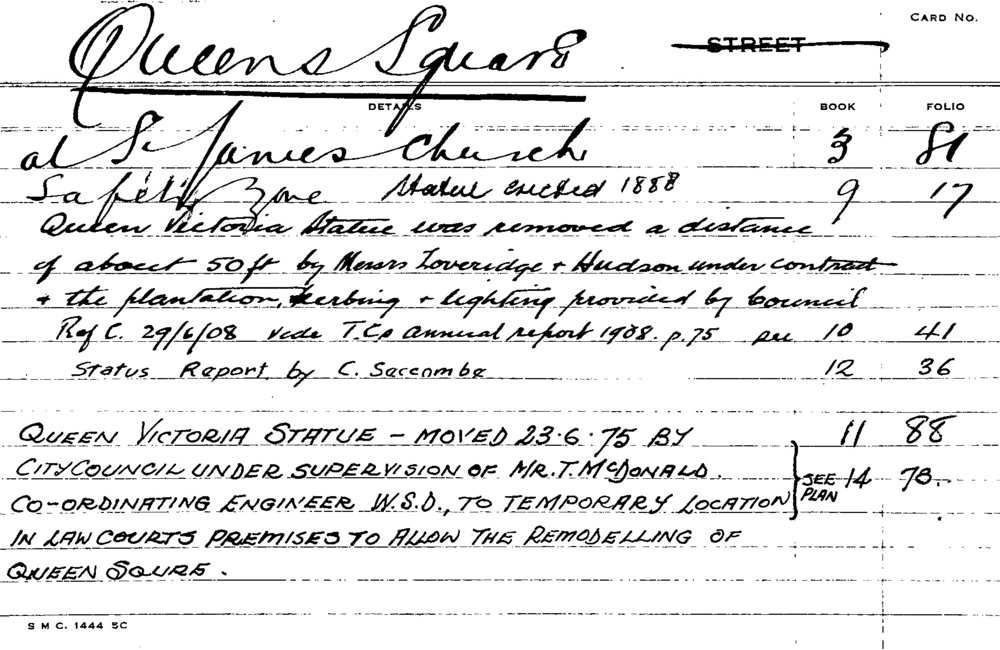 CARD NO.
Queens Square STREET
DETAILS BOOK FOLIO
at St James Church 3 81
Safety Zone Statue erected 1888 9 17
Queen Victoria Statue was removed a distance
of about 50 ft by Messrs Loveridge + Hudson under contract
+ the plantation, kerbing + lighting provided by Council
Ref C. 29/6/08 vide T.Cs annual report 1908. p.75 see 10 41
Status Report by C. Seccombe 12 36
QUEEN VICTORIA STATUE - MOVED 23.6.75 BY 11 88
CITY COUNCIL UNDER SUPERVISION OF MR. T. MCDONALD. SEE 14 78.
CO-ORDINATING ENGINEER W.S.D., TO TEMPORARY LOCATION PLAN
IN LAW COURTS PREMISES TO ALLOW THE REMODELLING OF
QUEEN SQURE.
S M C. 1444 5C